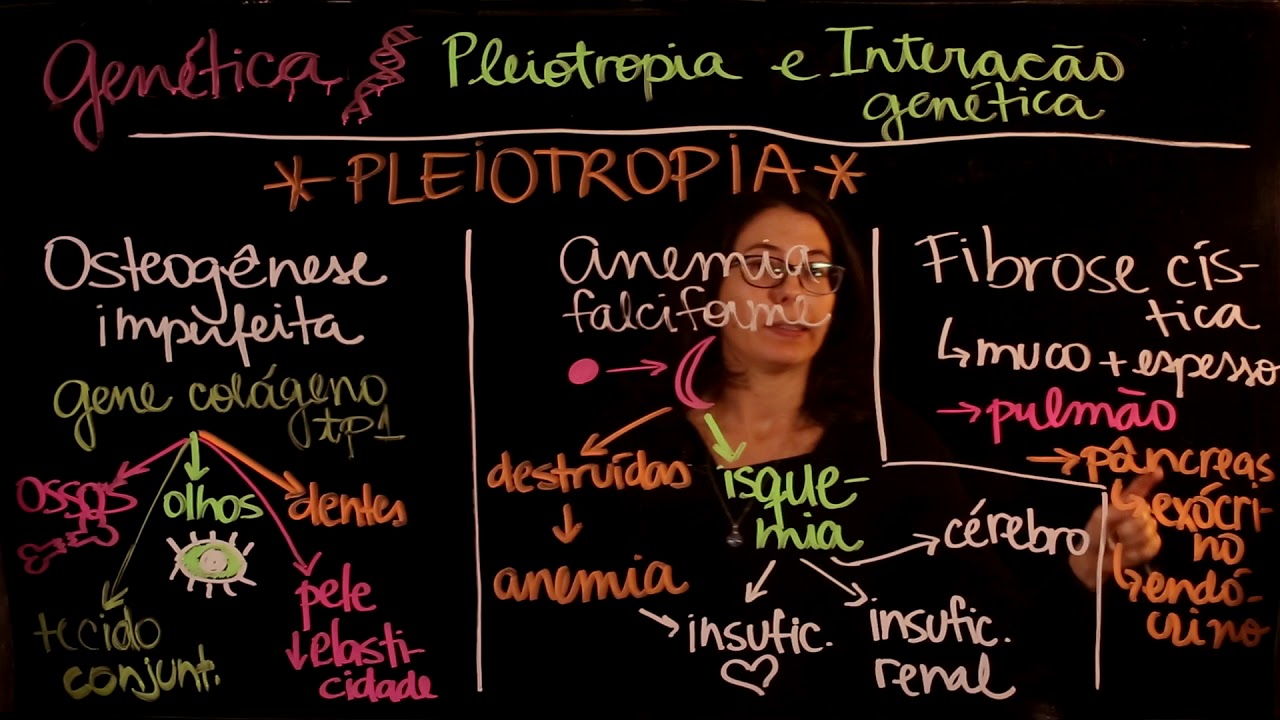 Genética
Pleiotropia e Interação
genética
*PLEIOTROPIA*
Osteogênese
imperfeita
gene colágeno
tp1
ossos
olhos
dentes
tecido
conjunt.
pele
↓elasti-
cidade
Anemia
falciforme
destruídas
anemia
isque-
mia
cérebro
insufic.
insufic.
renal
Fibrose cís-
tica
↳muco + espesso
→pulmão
→pâncreas
↳exócri-
no
↳endó-
crino